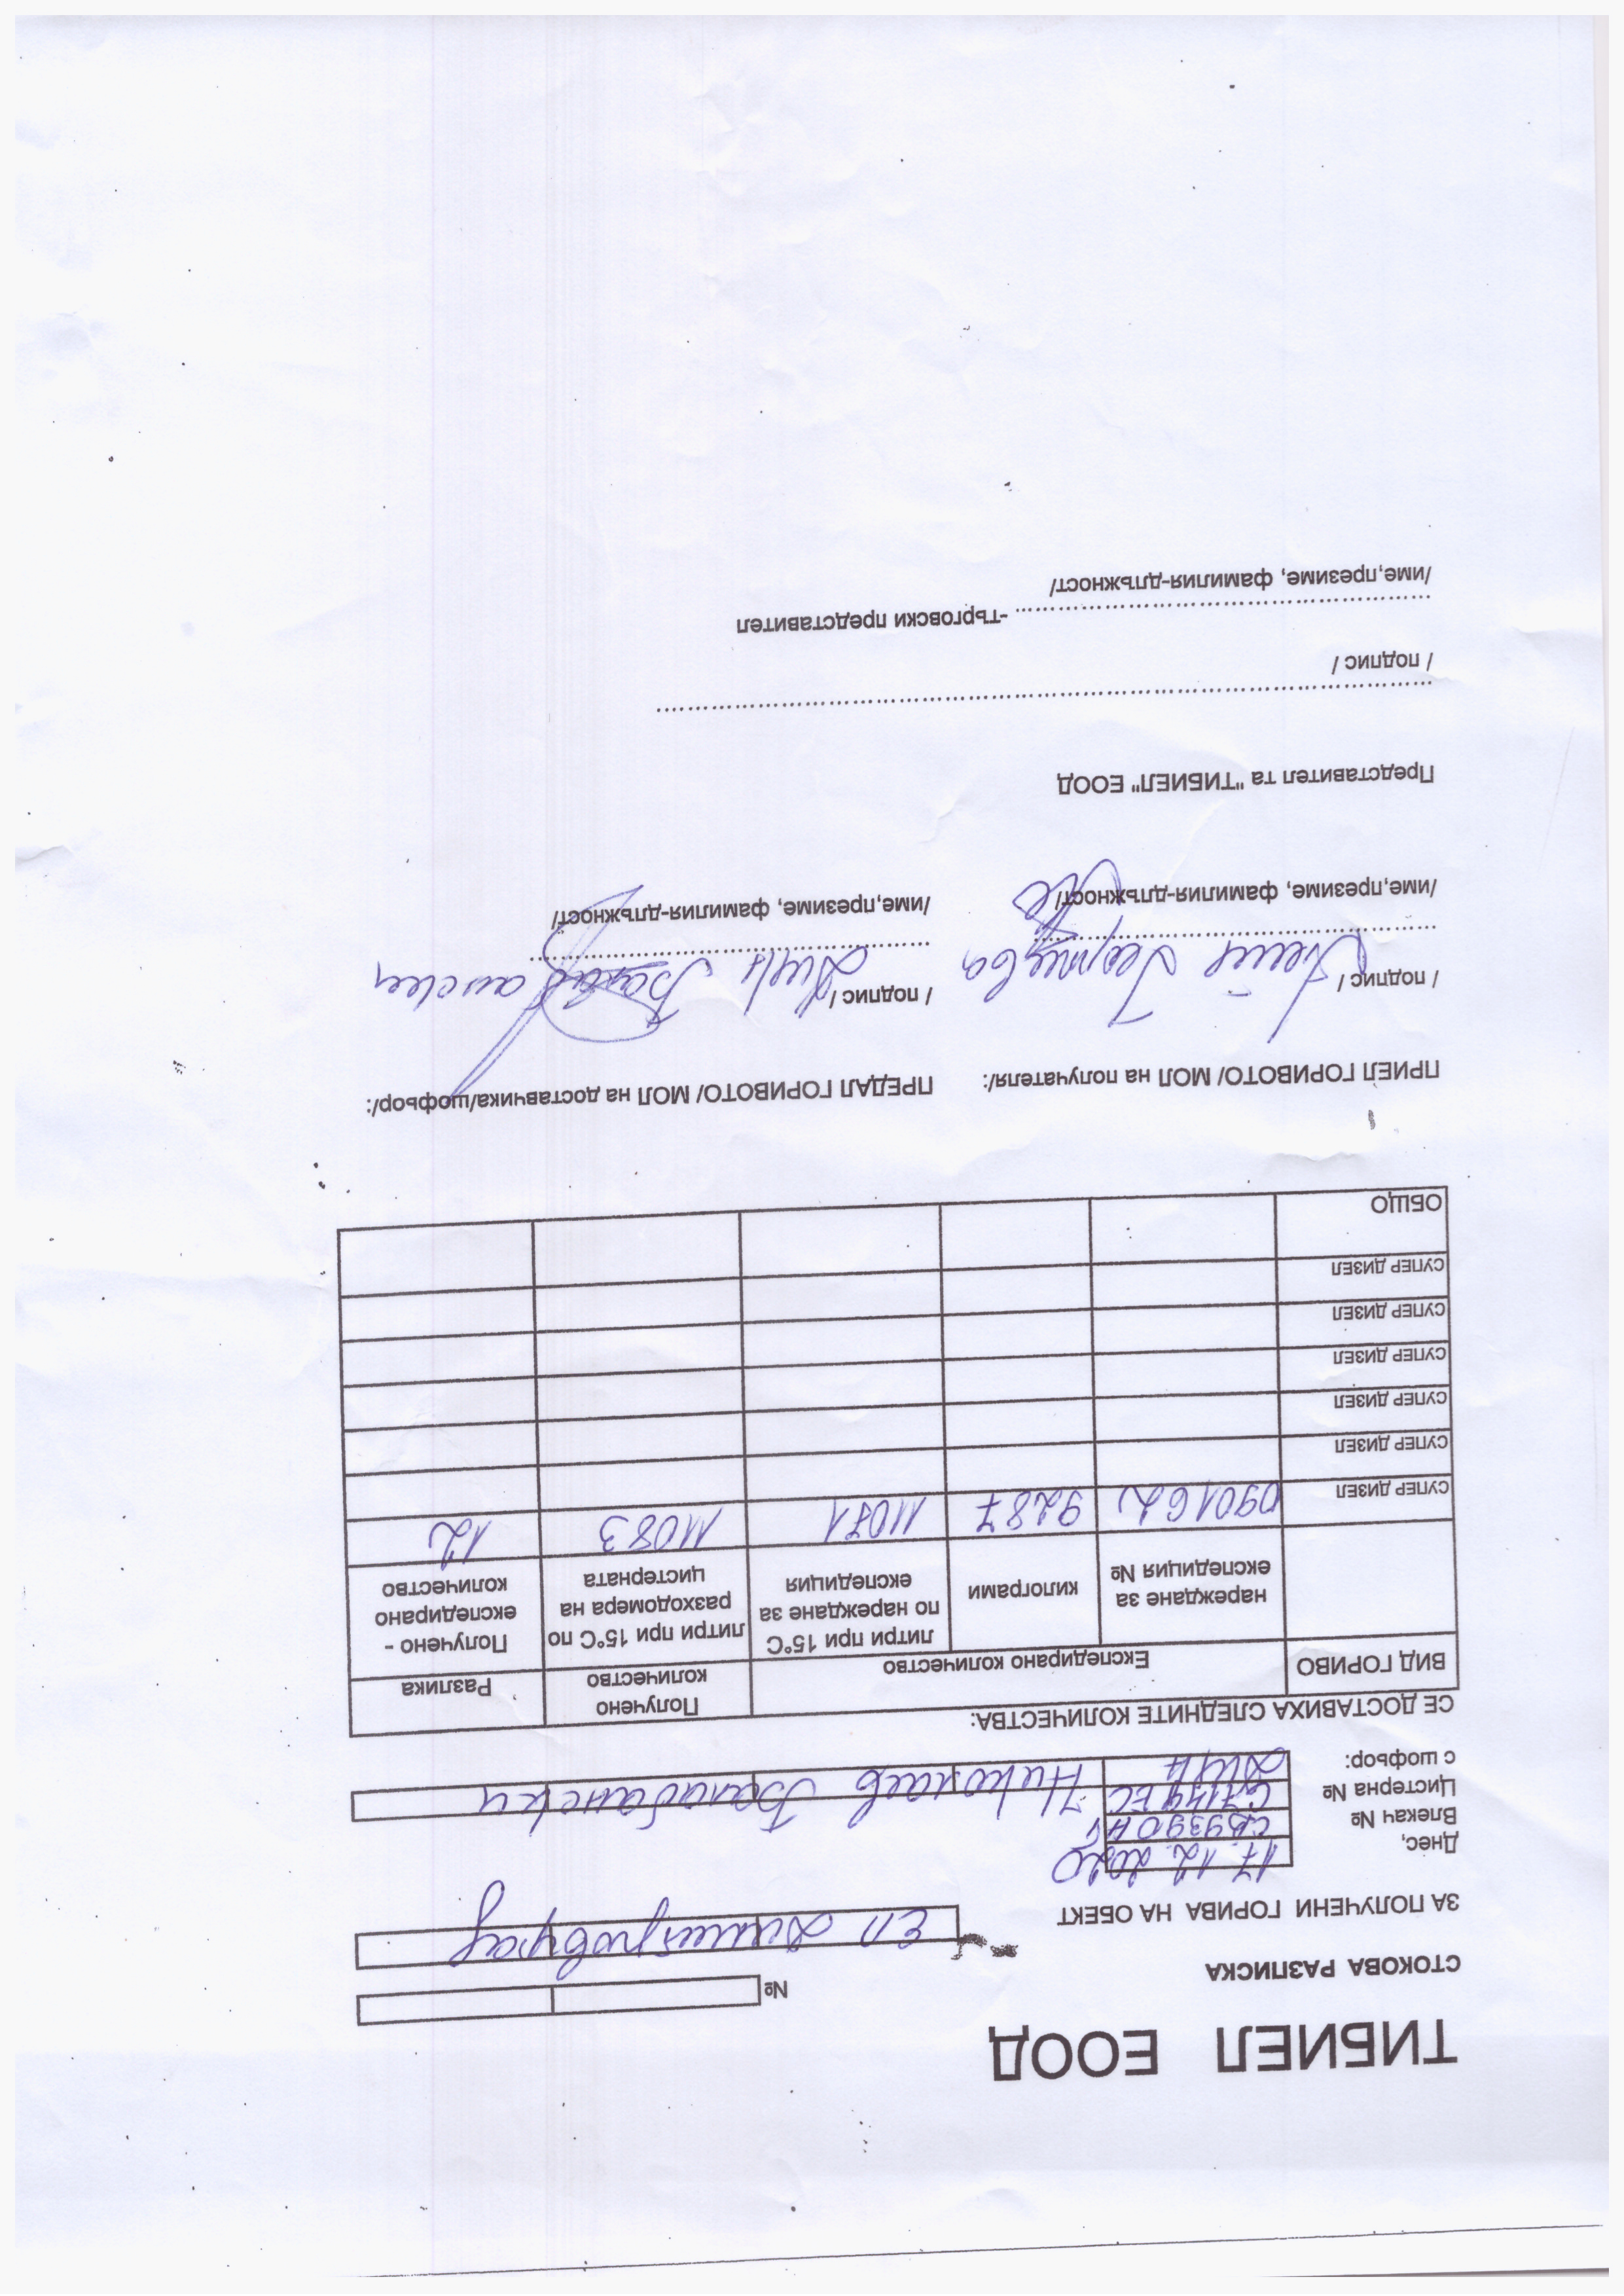 ТИБИЕЛ ЕООД
№
СТОКОВА РАЗПИСКА
ЗА ПОЛУЧЕНИ ГОРИВА НА ОБЕКТ ЕП Димитровград
Днес, 17.12.2020
Влекач № СВ9390НЧ
Цистерна № С7149ЕС
с шофьор: Николаев Балабански
СЕ ДОСТАВИХА СЛЕДНИТЕ КОЛИЧЕСТВА:
ВИД ГОРИВО Експедирано количество Получено количество Разлика
нареждане за експедиция № килограми литри при 15°C по нареждане за експедиция литри при 15°C по разходомера на цистерната Получено - експедирано количество
СУПЕР ДИЗЕЛ 090162 9287 11071 11083 12
СУПЕР ДИЗЕЛ
СУПЕР ДИЗЕЛ
СУПЕР ДИЗЕЛ
СУПЕР ДИЗЕЛ
СУПЕР ДИЗЕЛ
ОБЩО
ПРИЕЛ ГОРИВОТО/ МОЛ на получателя/: ПРЕДАЛ ГОРИВОТО/ МОЛ на доставчика/шофьор/:
/ подпис / / подпис /
/име,презиме, фамилия-длъжност/ /име,презиме, фамилия-длъжност/
Представител та "ТИБИЕЛ" ЕООД
/ подпис /
-Търговски представител
/име,презиме, фамилия-длъжност/